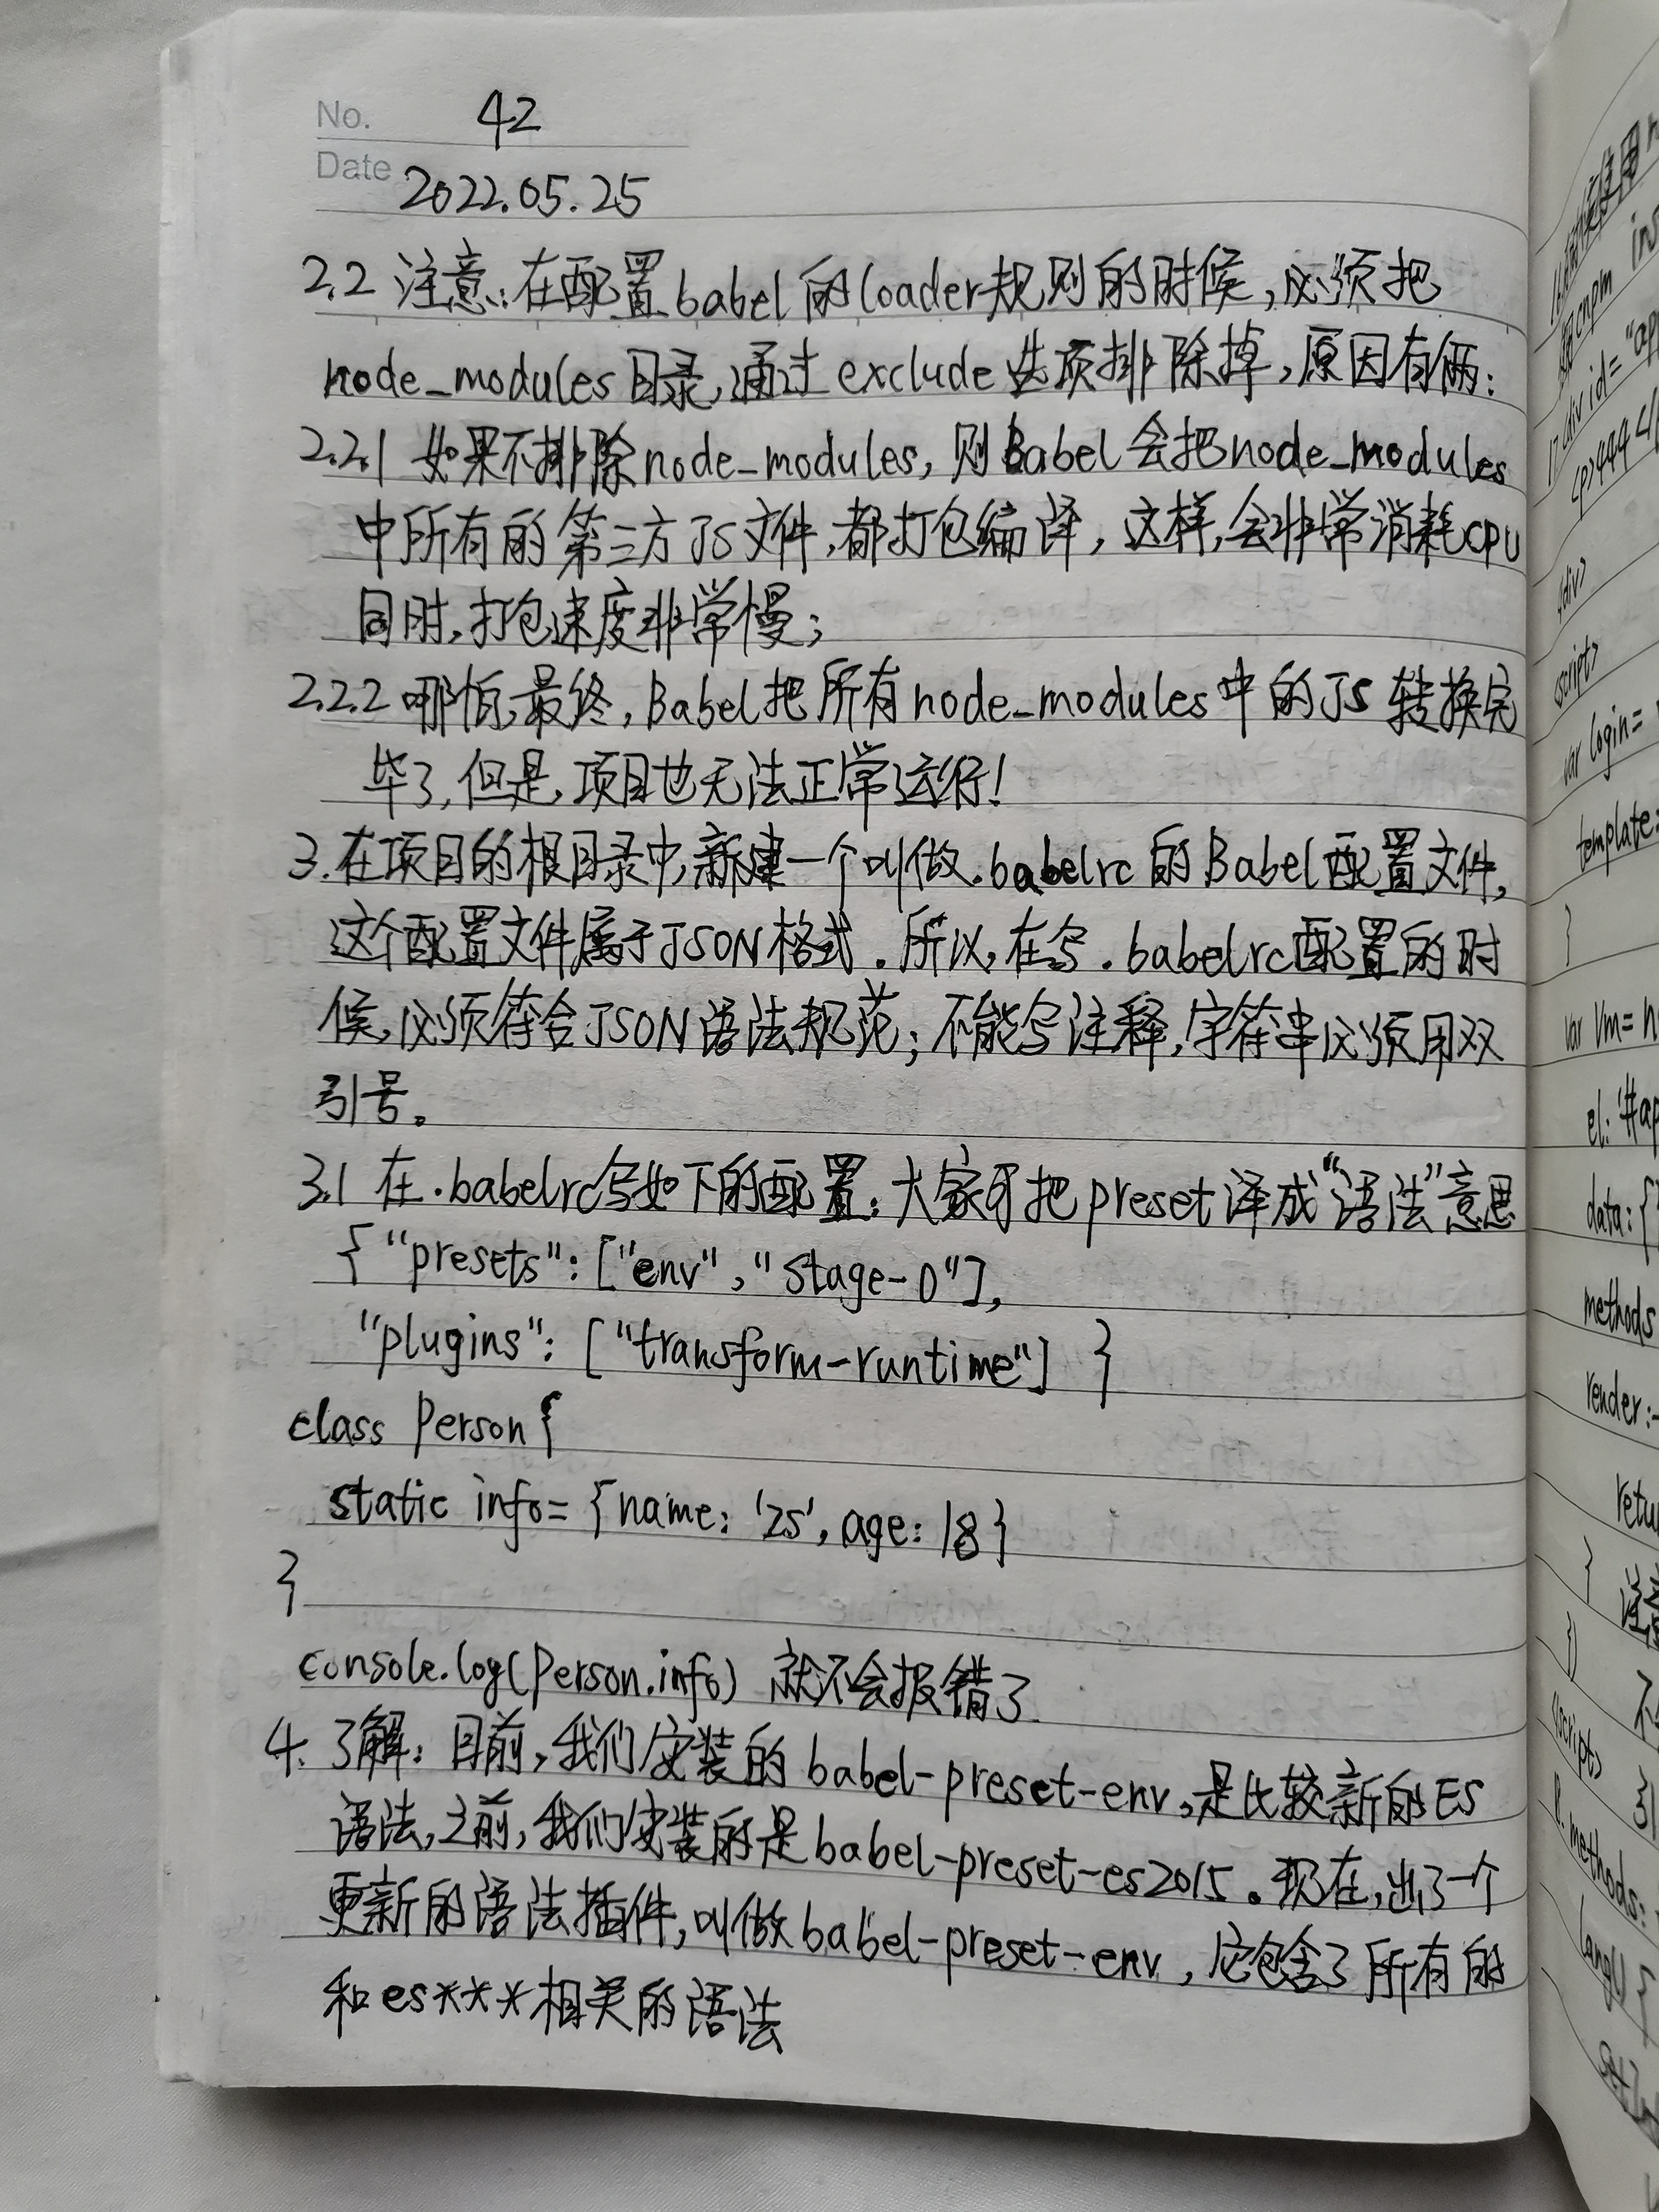 No. 42
Date 2022.05.25
2.2 注意:在配置babel的loader规则的时候,必须把
node_modules目录,通过exclude选项排除掉,原因有俩:
2.2.1 如果不排除node_modules,则Babel会把node_modules
中所有的第三方JS文件,都打包编译,这样,会非常消耗CPU
同时,打包速度非常慢;
2.2.2 哪怕,最终,Babel把所有node_modules中的JS转换完
毕了,但是,项目也无法正常运行!
3.在项目的根目录中,新建一个叫做.babelrc的Babel配置文件,
这个配置文件属于JSON格式.所以,在写.babelrc配置的时
候,必须符合JSON语法规范;不能写注释,字符串必须用双
引号。
3.1 在.babelrc写如下的配置:大家可把preset译成“语法”意思
{"presets":["env","stage-0"],
"plugins":["transform-runtime"] }
class Person{
static info={name:'zs',age:18}
}
console.log(Person.info) 就不会报错了.
4.了解:目前,我们安装的babel-preset-env,是比较新的ES
语法,之前,我们安装的是babel-preset-es2015。现在,出了一个
更新的语法插件,叫做babel-preset-env,它包含了所有的
和es***相关的语法
var login=
template:
}
el: '#ap
data:{
methods
render:
retu
}
})